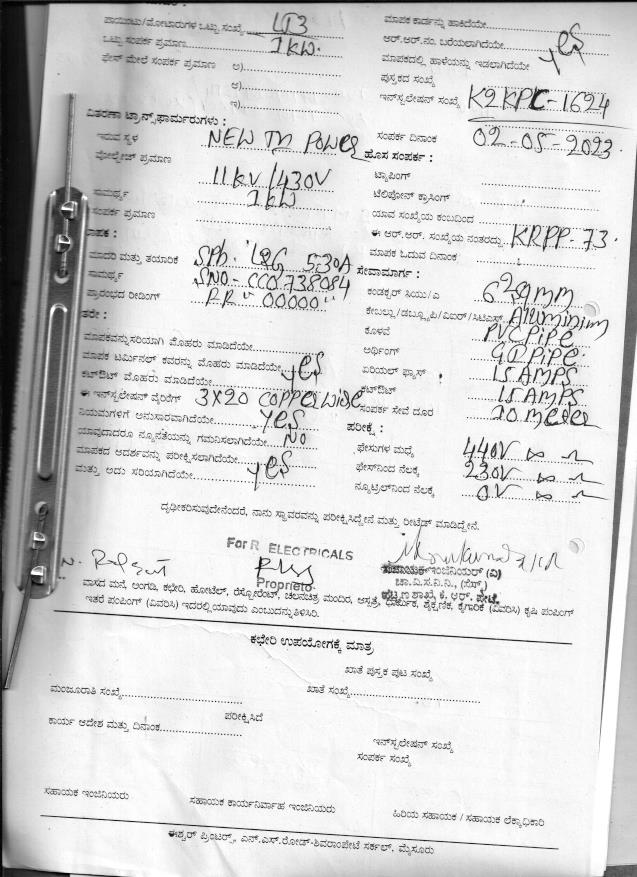 ಪಾಯಿಂಟು/ಮೋಟಾರುಗಳ ಒಟ್ಟು ಸಂಖ್ಯೆ LT3
ಒಟ್ಟು ಸಂಪರ್ಕ ಪ್ರಮಾಣ 1KW.
ಫೇಸ್ ಮೇಲೆ ಸಂಪರ್ಕ ಪ್ರಮಾಣ ಅ)
ಆ)
ಇ)
ಮಾಪಕ ಕಾರ್ಡನ್ನು ಹಾಕಿದೆಯೇ
ಆರ್.ಆರ್.ನಂ. ಬರೆಯಲಾಗಿದೆಯೇ
ಮಾಪಕದಲ್ಲಿ ಹಾಳೆಯನ್ನು ಇಡಲಾಗಿದೆಯೇ yes
ಪುಸ್ತಕದ ಸಂಖ್ಯೆ
ಇನ್‌ಸ್ಟಲೇಷನ್ ಸಂಖ್ಯೆ K2KPC-1624
ವಿತರಣಾ ಟ್ರಾನ್ಸ್‌ಫಾರ್ಮರುಗಳು :
ಇರುವ ಸ್ಥಳ NEW TM POWER
ವೋಲ್ಟೇಜ್ ಪ್ರಮಾಣ 11KV/430V
ಸಾಮರ್ಥ್ಯ 1KW
ಸಂಪರ್ಕ ಪ್ರಮಾಣ
ಸಂಪರ್ಕ ದಿನಾಂಕ 02-05-2023.
ಹೊಸ ಸಂಪರ್ಕ :
ಟ್ಯಾಪಿಂಗ್
ಟೆಲಿಪೋನ್ ಕ್ರಾಸಿಂಗ್
ಯಾವ ಸಂಖ್ಯೆಯ ಕಂಬದಿಂದ
ಈ ಆರ್.ಆರ್. ಸಂಖ್ಯೆಯ ನಂತರದ್ದು KRPP-73.
ಮಾಪಕ ಓದುವ ದಿನಾಂಕ
ಮಾಪಕ :
ಮಾದರಿ ಮತ್ತು ತಯಾರಿಕ SPh. L&G 5.30A
ಸಾಮರ್ಥ್ಯ SNO-CCO.738084
ಪ್ರಾರಂಭದ ರೀಡಿಂಗ್ RR " 00000 "
ಸೇವಾಮಾರ್ಗ :
ಕಂಡಕ್ಟರ್ ಸಿಯು/ಎ 6 sqmm
ಕೇಬಲ್ಲು/ಡಬ್ಲ್ಯೂಪಿ/ಎಐಆರ್/ಸಿಟಿಎಸ್ Aluminium
ಕೊಳವೆ PVC Pipe
ಅರ್ಥಿಂಗ್ GI Pipe
ಏರಿಯಲ್ ಫ್ಯೂಸ್ 15 AMPS
ಕಟ್‌ಔಟ್ 15 AMPS
ಸಂಪರ್ಕ ಸೇವೆ ದೂರ 20 meter
ಇತರೇ :
ಮಾಪಕವನ್ನು ಸರಿಯಾಗಿ ಮೊಹರು ಮಾಡಿದೆಯೇ
ಮಾಪಕ ಟರ್ಮಿನಲ್ ಕವರನ್ನು ಮೊಹರು ಮಾಡಿದೆಯೇ yes
ಕಟ್‌ಔಟ್ ಮೊಹರು ಮಾಡಿದೆಯೇ
ಈ ಇನ್‌ಸ್ಟಲೇಷನ್ ವೈರಿಂಗ್ 3X20 COPPER WIRE
ನಿಯಮಗಳಿಗೆ ಅನುಸಾರವಾಗಿದೆಯೇ yes
ಯಾವುದಾದರೂ ನ್ಯೂನತೆಯನ್ನು ಗಮನಿಸಲಾಗಿದೆಯೇ NO
ಮಾಪಕದ ಆದರ್ಶವನ್ನು ಪರೀಕ್ಷಿಸಲಾಗಿದೆಯೇ
ಮತ್ತು ಅದು ಸರಿಯಾಗಿದೆಯೇ yes
ಪರೀಕ್ಷೆ :
ಫೇಸುಗಳ ಮಧ್ಯೆ 440V
ಫೇಸ್‌ನಿಂದ ನೆಲಕ್ಕೆ 230V
ನ್ಯೂಟ್ರಲ್‌ನಿಂದ ನೆಲಕ್ಕೆ 0V
ದೃಢೀಕರಿಸುವುದೇನೆಂದರೆ, ನಾನು ಸ್ಥಾವರವನ್ನು ಪರೀಕ್ಷಿಸಿದ್ದೇನೆ ಮತ್ತು ರೀಟೆಡ್ ಮಾಡಿದ್ದೇನೆ.
For R. ELECTRICALS
Proprieto
ಸಹಾಯಕ ಇಂಜಿನಿಯರ್ (ವಿ)
ಚಾ.ವಿ.ಸ.ನಿ.ನಿ.,
ಪಟ್ಟಣ ಶಾಖೆ, ಕೆ. ಆರ್. ಪೇಟೆ.
ವಾಸದ ಮನೆ, ಅಂಗಡಿ, ಕಛೇರಿ, ಹೋಟೆಲ್, ರೆಸ್ಟೋರೆಂಟ್, ಚಲನಚಿತ್ರ ಮಂದಿರ, ಆಸ್ಪತ್ರೆ, ಧಾರ್ಮಿಕ, ಶೈಕ್ಷಣಿಕ, ಕೈಗಾರಿಕೆ (ವಿವರಿಸಿ) ಕೃಷಿ ಪಂಪಿಂಗ್
ಇತರೆ ಪಂಪಿಂಗ್ (ವಿವರಿಸಿ) ಇದರಲ್ಲಿ ಯಾವುದು ಎಂಬುದನ್ನು ತಿಳಿಸಿರಿ.
ಕಛೇರಿ ಉಪಯೋಗಕ್ಕೆ ಮಾತ್ರ
ಖಾತೆ ಪುಸ್ತಕ ಪುಟ ಸಂಖ್ಯೆ
ಮಂಜೂರಾತಿ ಸಂಖ್ಯೆ
ಖಾತೆ ಸಂಖ್ಯೆ
ಪರೀಕ್ಷಿಸಿದೆ
ಕಾರ್ಯ ಆದೇಶ ಮತ್ತು ದಿನಾಂಕ
ಇನ್‌ಸ್ಟಲೇಷನ್ ಸಂಖ್ಯೆ
ಸಂಪರ್ಕ ಸಂಖ್ಯೆ
ಸಹಾಯಕ ಇಂಜಿನಿಯರು
ಸಹಾಯಕ ಕಾರ್ಯನಿರ್ವಾಹ ಇಂಜಿನಿಯರು
ಹಿರಿಯ ಸಹಾಯಕ / ಸಹಾಯಕ ಲೆಕ್ಕಾಧಿಕಾರಿ
ಈಶ್ವರ್ ಪ್ರಿಂಟರ‍್ಸ್, ಎನ್.ಎಸ್.ರೋಡ್-ಶಿವರಾಂಪೇಟೆ ಸರ್ಕಲ್, ಮೈಸೂರು